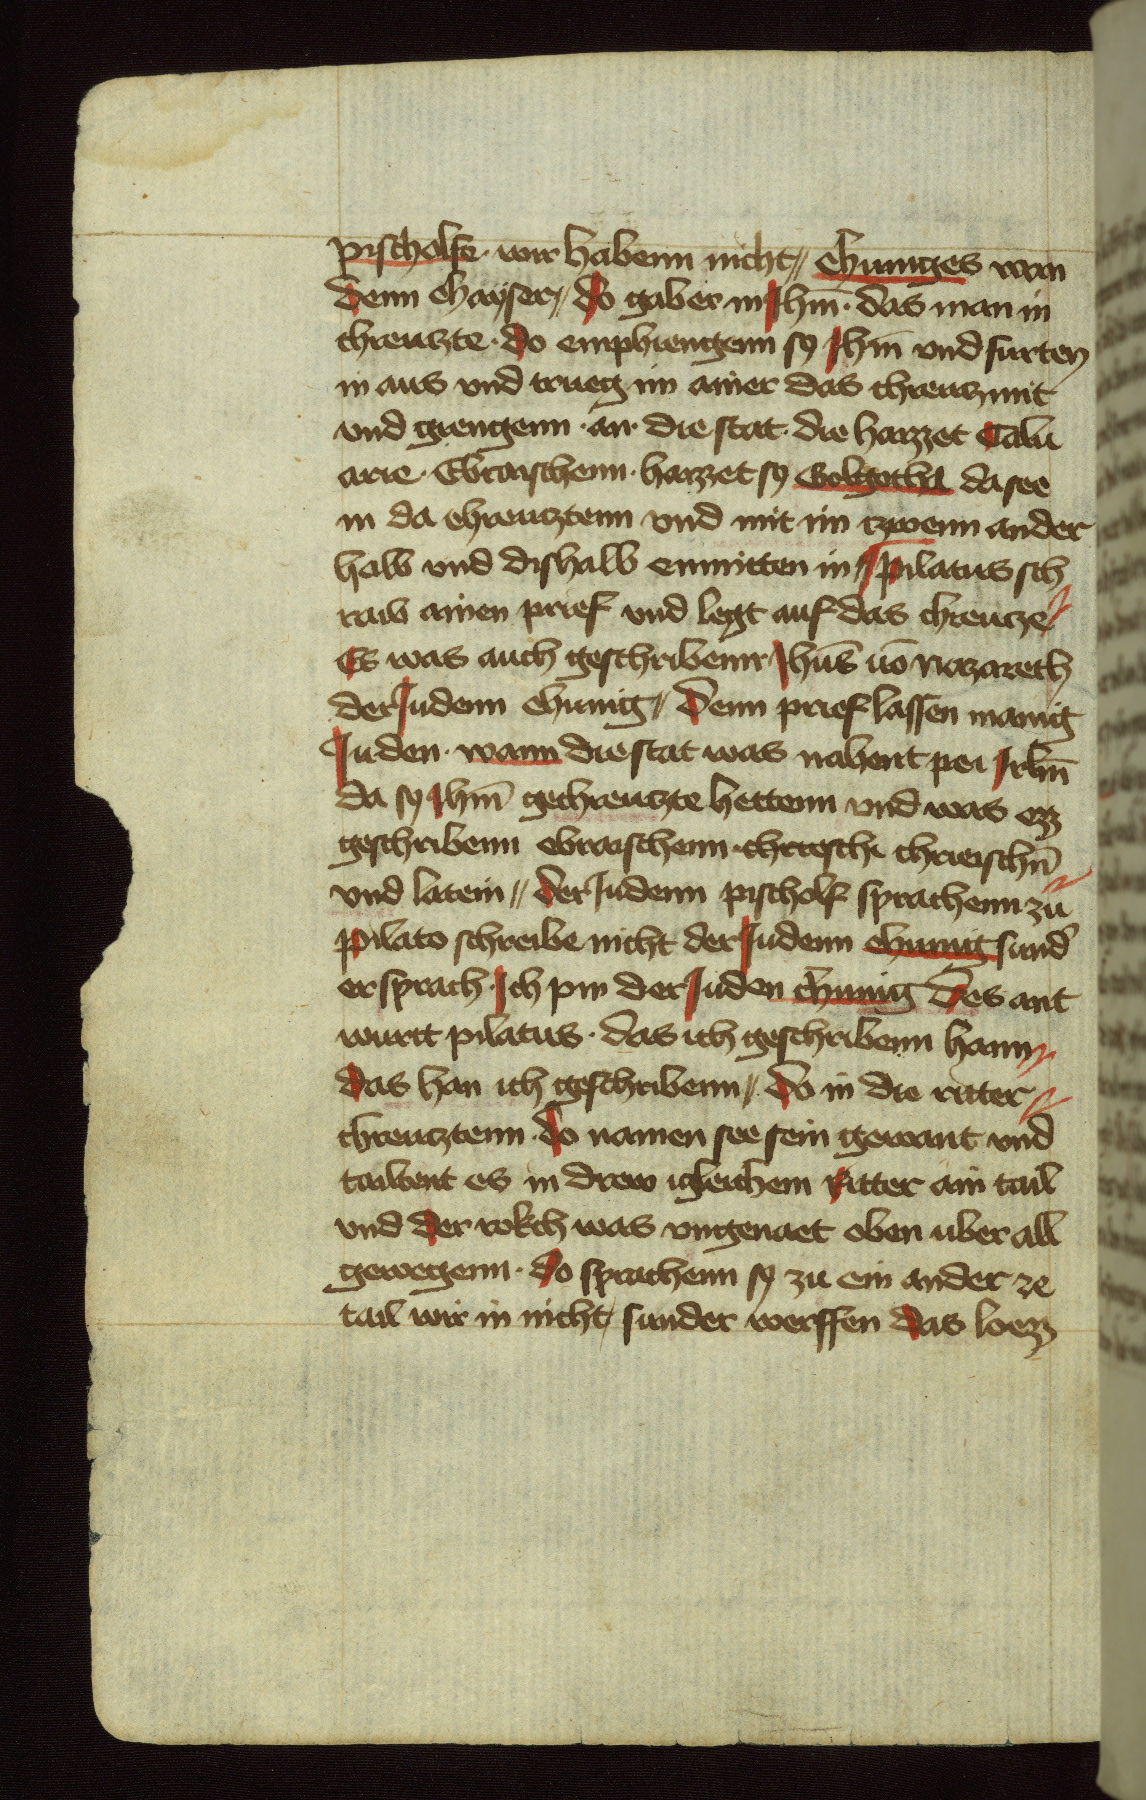 pischolfe · wir habenn nicht // chuniges wan
denn chayser // do gab er in Jhm̅ · das man in
chreuczte · do emphiengenn sy Jhm̅ vnd furten
in aus vnd trueg im ainer das chreucz mit
vnd giengenn · an · die stat · die haizzet Calu
arie · Ebraischenn · haizzet sy Golgotha da see
in da chreucztenn vnd mit im czwenn ander
halb vnd dishalb enmitten in // pilatus sch
raib ainen prief vnd legt auf das chreucze //
Es was auch geschribenn · Jhūs vo̅ Nazareth
der Judenn chunig // Denn prief lassen manig
Juden · wann die stat was nahent pei Jrlm̅
da sy Jhm̅ gechreuczte hettenn vnd was ez
geschribenn ebraischenn · chriesch chrieischn̅
vnd latein // der Judenn pischolf sprachenn zu
pilato schreibe nicht der Judenn chunig sund̓
er sprach · Jch pin der Juden chunig Des ant
wurtt pilatus · das ich geschribenn hann //
das han ich geschribenn // Do in die ritter //
chreucztenn · do namen see sein gewant vnd
tailvent es in drew igleichem Ritter ain tail
vnd der rokch was vngenaet oben uber all
gewegenn · do sprachenn sy zu ein ander ze
tail wir in nicht / sunder werffen das loez